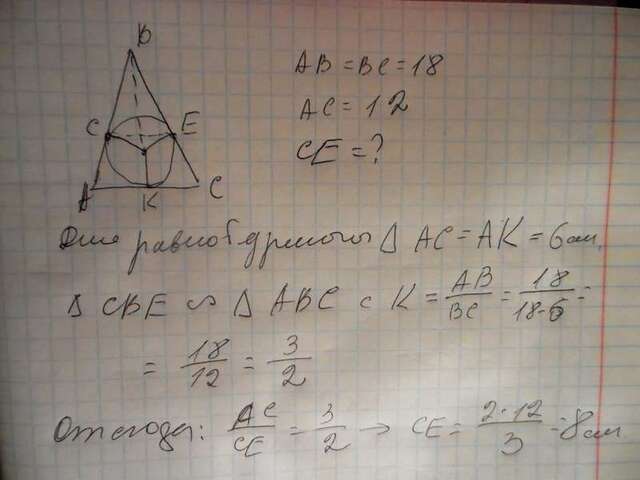 B
C E
A K C
AB = BC = 18
AC = 12
CE = ?
Для равнобедренного Δ AC = AK = 6 см.
Δ CBE ∽ Δ ABC с K = AB/BC = 18/18-6 =
= 18/12 = 3/2
Отсюда: AC/CE = 3/2 → CE = 2·12/3 = 8 см